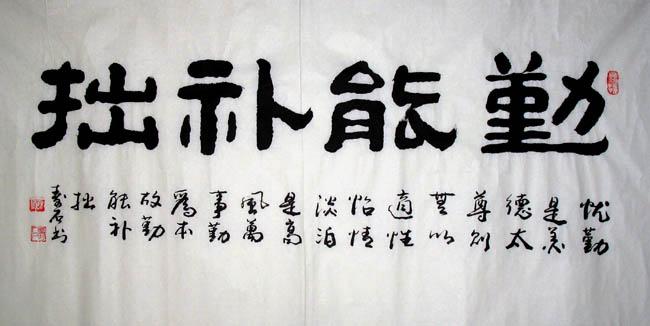 勤能补拙
忧勤
是美
德太
则
無以
適性
怡情
淡泊
是高
風萬
事勤
爲本
故勤
能补
拙
石书